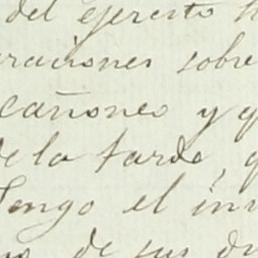 del ejercito
raciones sobre
cañoneo y q
de la tarde, q
Tengo el in
de sus